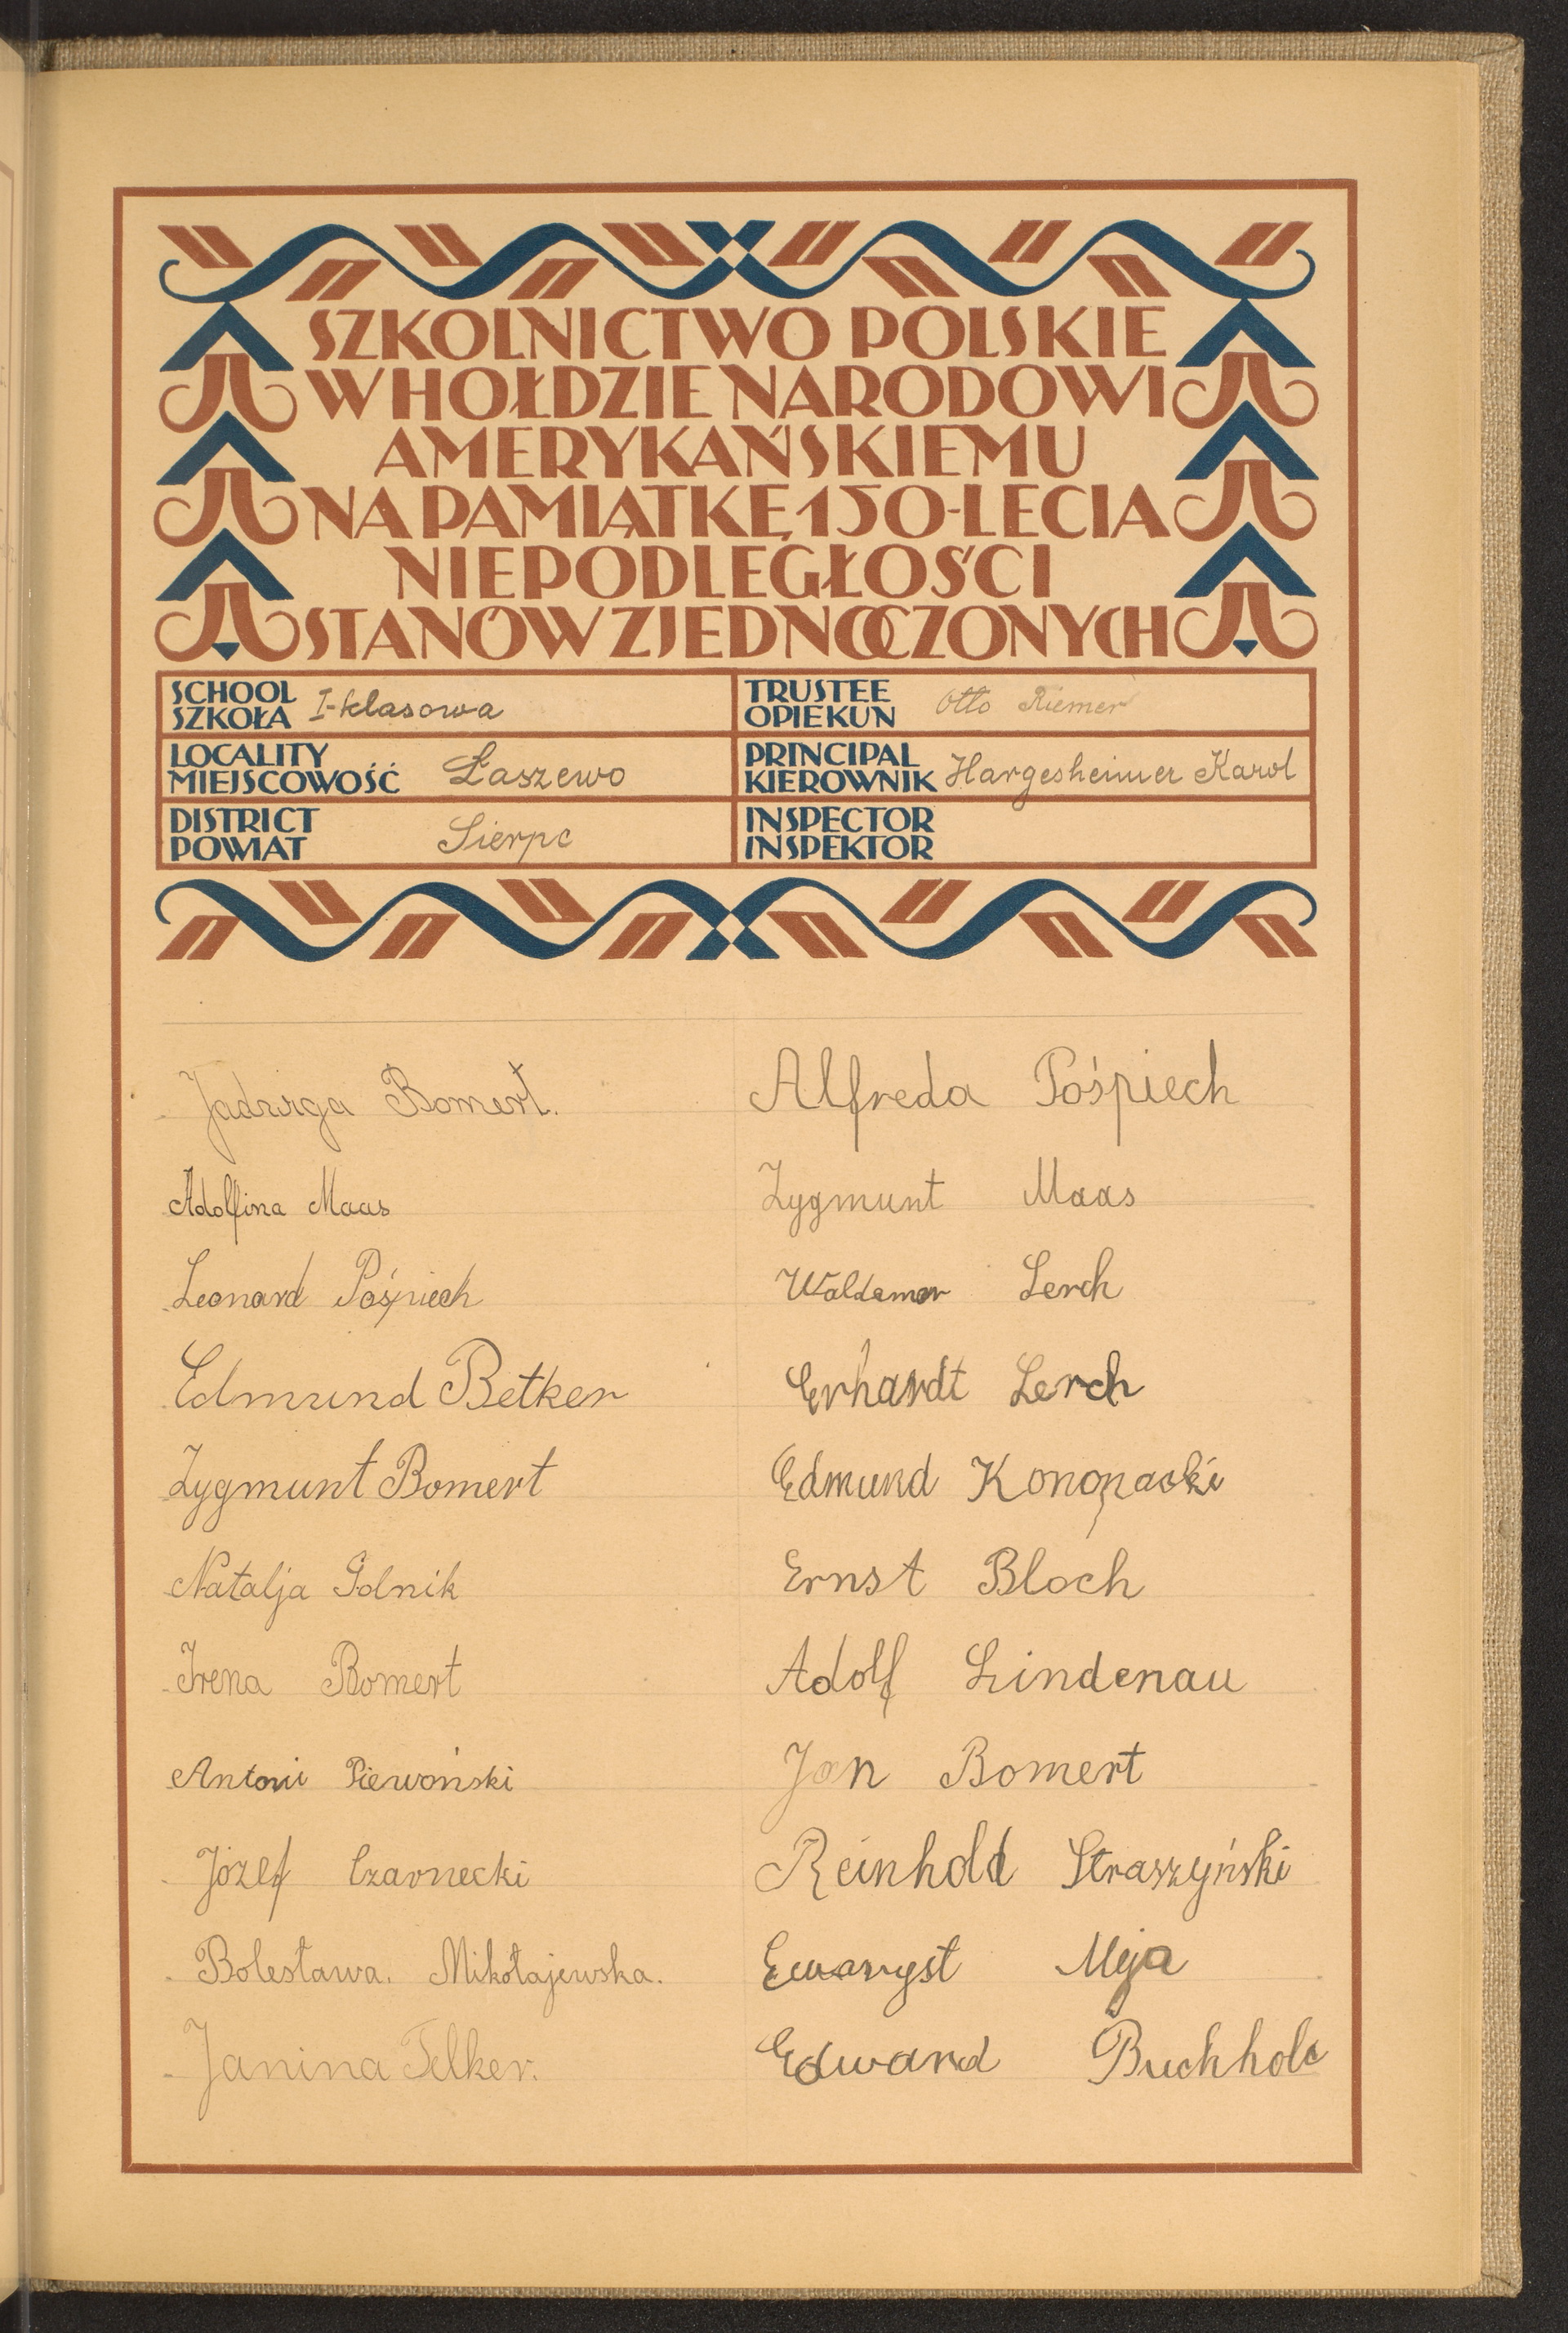 SZKOLNICTWO POLSKIE
W HOŁDZIE NARODOWI
AMERYKAŃSKIEMU
NA PAMIĄTKĘ 150-LECIA
NIEPODLEGŁOŚCI
STANÓW ZJEDNOCZONYCH
SCHOOL
SZKOŁA I-klasowa
TRUSTEE
OPIEKUN Otto Riemer
LOCALITY
MIEJSCOWOŚĆ Łaszewo
PRINCIPAL
KIEROWNIK Hargesheimer Karol
DISTRICT
POWIAT Sierpc
INSPECTOR
INSPEKTOR
Jadwiga Bomert.
Adolfina Maas
Leonard Pośpiech
Edmund Betker
Zygmunt Bomert
Natalja Golnik
Irena Bomert
Antoni Piewoński
Józef Czarnecki
Bolesława. Mikołajewska.
Janina Felker.
Alfreda Pośpiech
Zygmunt Maas
Waldemar Lerch
Erhardt Lerch
Edmund Konopacki
Ernst Bloch
Adolf Lindenau
Jan Bomert
Reinhold Straszyński
Ewaryst Myja
Edward Buchholc